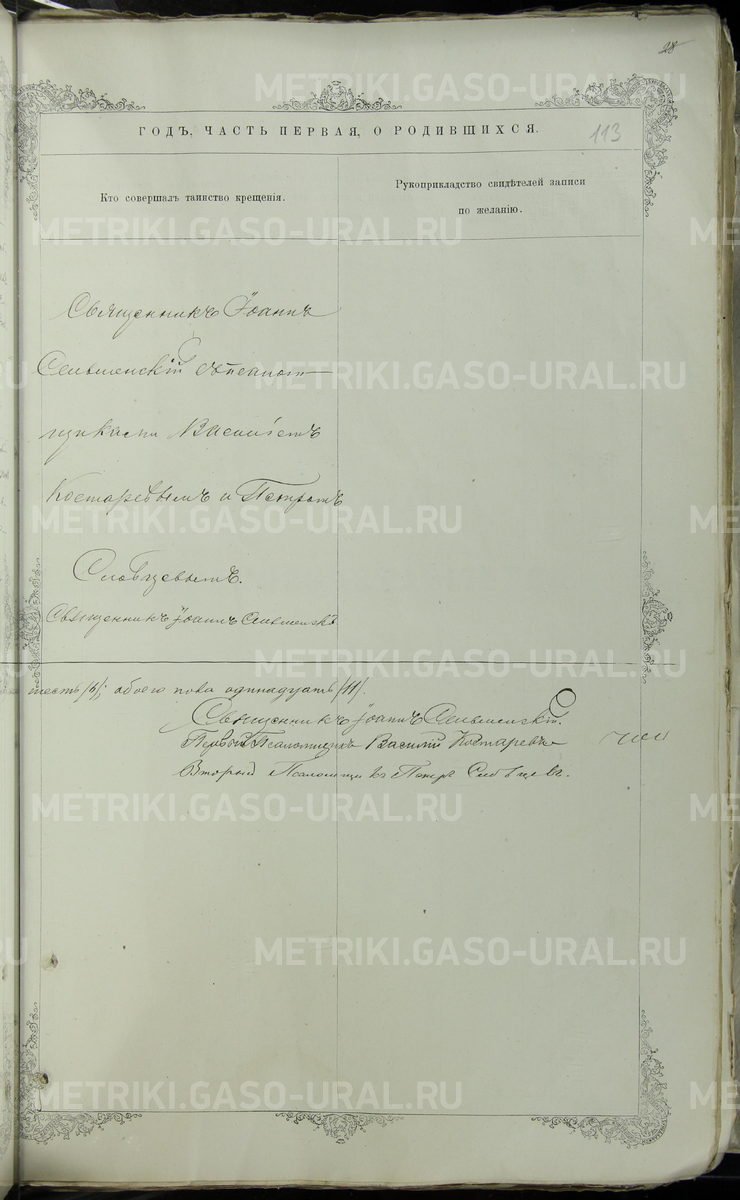 28
ГОДЪ, ЧАСТЬ ПЕРВАЯ, О РОДИВШИХСЯ.
113
Кто совершалъ таинство крещенія.
Рукоприкладство свидѣтелей записи
по желанію.
Священникъ Іоаннъ
съ псалом-
щиками Василіемъ
Костаревымъ и Петромъ
Словцевымъ.
Священникъ Іоаннъ
шесть /6/; обоего пола одинадцать /11/.
Священникъ Іоаннъ
Первый Псаломщикъ Василій Костаревъ
Второй Псаломщикъ Петръ Словцевъ.
METRIKI.GASO-URAL.RU